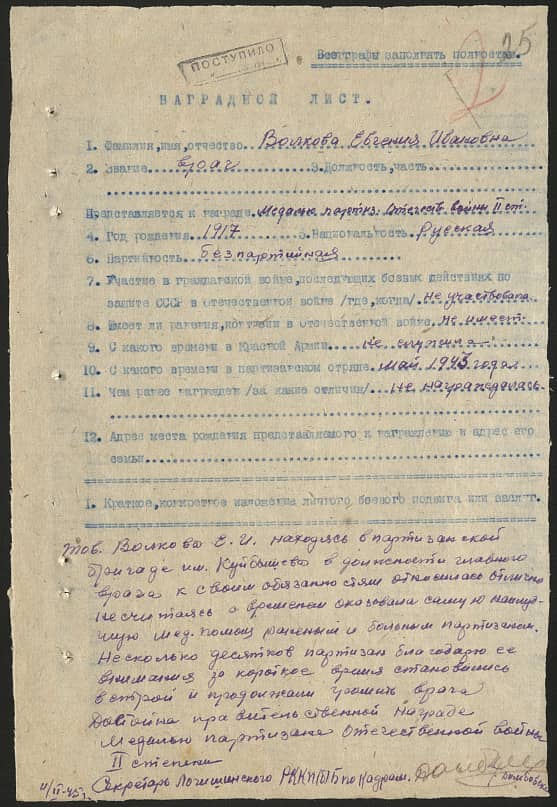 25
ПОСТУПИЛО
Все графы заполнять полностью.
2
НАГРАДНОЙ ЛИСТ.
1. Фамилия, имя, отчество Волкова Евгения Ивановна
2. Звание врач 3. Должность, часть
Представляется к награде Медалью партиз. Отечеств войны II ст.
4. Год рождения 1917 5. Национальность Русская
6. Партийность Безпартийная
7. Участие в гражданской войне, последующих боевых действиях по
защите СССР в отечественной войне /где, когда/ не участвовала
8. Имеет ли ранения, контузии в отечественной войне не имеет
9. С какого времени в Красной Армии не служила
10. С какого времени в партизанском отряде май 1943 года
11. Чем ранее награжден /за какие отличия/ Не награждалась
12. Адрес места рождения представляемого к награждению и адрес его
семьи
1. Краткое, конкретное изложение личного боевого подвига или заслуг.
тов. Волкова Е. И. находясь в партизанской
бригаде им. Куйбышева в должности главного
врача к своим обязанностям относилась отлично
несчитаясь с временем оказывала самую наилуд-
чшую мед. помощ раненым и больным партизанам.
Несколько десятков партизан благодаря ее
внимания за короткое время становились
в строй и продолжали громить врага
Достойна правительственной награде
Медалью партизана Отечественной войны
II степени
Секретарь Логишинского РККП(б)Б по кадрам.